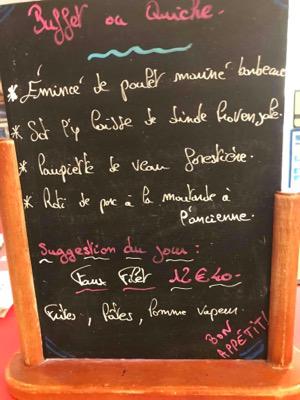 Buffet ou Quiche.
* Émincé de poulet mariné barbecue
* Sot l'y laisse de dinde Provençale.
* Paupiette de veau forestière.
* Roti de porc à la moutarde à
l'ancienne.
Suggestion du jour :
Faux Filet 12€40.
Frites, Pâtes, Pomme vapeur.
BON
APPÉTIT!